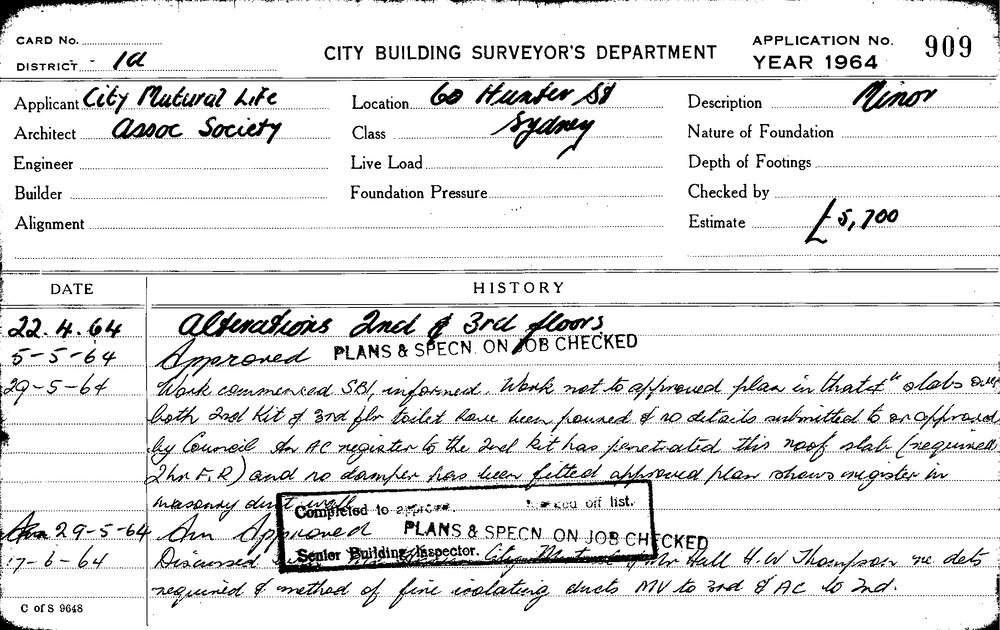 CARD No.
DISTRICT - 1a
CITY BUILDING SURVEYOR'S DEPARTMENT
APPLICATION No. 909
YEAR 1964
Applicant City Mutural Life
Location 60 Hunter St
Description Minor
Architect assoc Society
Class Sydney
Nature of Foundation
Engineer
Live Load
Depth of Footings
Builder
Foundation Pressure
Checked by
Alignment
Estimate £5,700
DATE HISTORY
22.4.64 Alterations 2nd & 3rd floors
5-5-64 Approved PLANS & SPECN. ON JOB CHECKED
29-5-64 Work commenced SBI, informed. Work not to approved plan in that 4" slabs over
both 2nd Kit & 3rd flr toilet have been poured & no details submitted to or approved
by Council An AC register to the 2nd kit has penetrated this roof slab (required
2hr F.R) and no damper has been fitted approved plan shows register in
masonry duct wall
Completed to off list.
Am 29-5-64 Am Approved PLANS & SPECN. ON JOB CHECKED
Senior Building Inspector.
17-6-64 Discussed City Mutual & Mr Hall H.W Thompson re dets
required & method of fire isolating ducts MV to 3rd & AC to 2nd.
C of S 9648